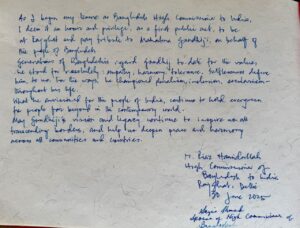 As I begin my tenure as Bangladesh High Commissioner to India,
I deem it an honour and privilege, as a first public act, to be
at Rajghat and pay tribute to Mahatma Gandhiji, on behalf of
the people of Bangladesh.
Generations of Bangladeshis regard Gandhiji, to date for the values,
he stood for : simplicity, empathy, harmony, tolerance.
to us for the ways, he championed pluralism, inclusion, secularism
throughout his life.
What he envisioned for the people of India, continue to hold evergreen
for people far beyond in the contemporary world.
May Gandhiji's vision and legacy continue to inspire us all
transcending borders, and help us deepen peace and harmony
across all communities and countries.
M. Riaz Hamidullah
High Commissioner of
Bangladesh to India
Rajghat, Delhi
30 June 2025
Spouse of High Commissioner of
Bangladesh